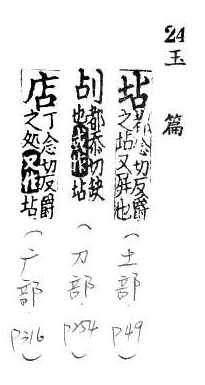 24 玉篇
坫 都念切反爵之坫又屏也 (土部 P49)
刮 都忝切缺也或作坫 (刀部 P254)
店 丁念切反爵之処又作坫 (广部 P316)